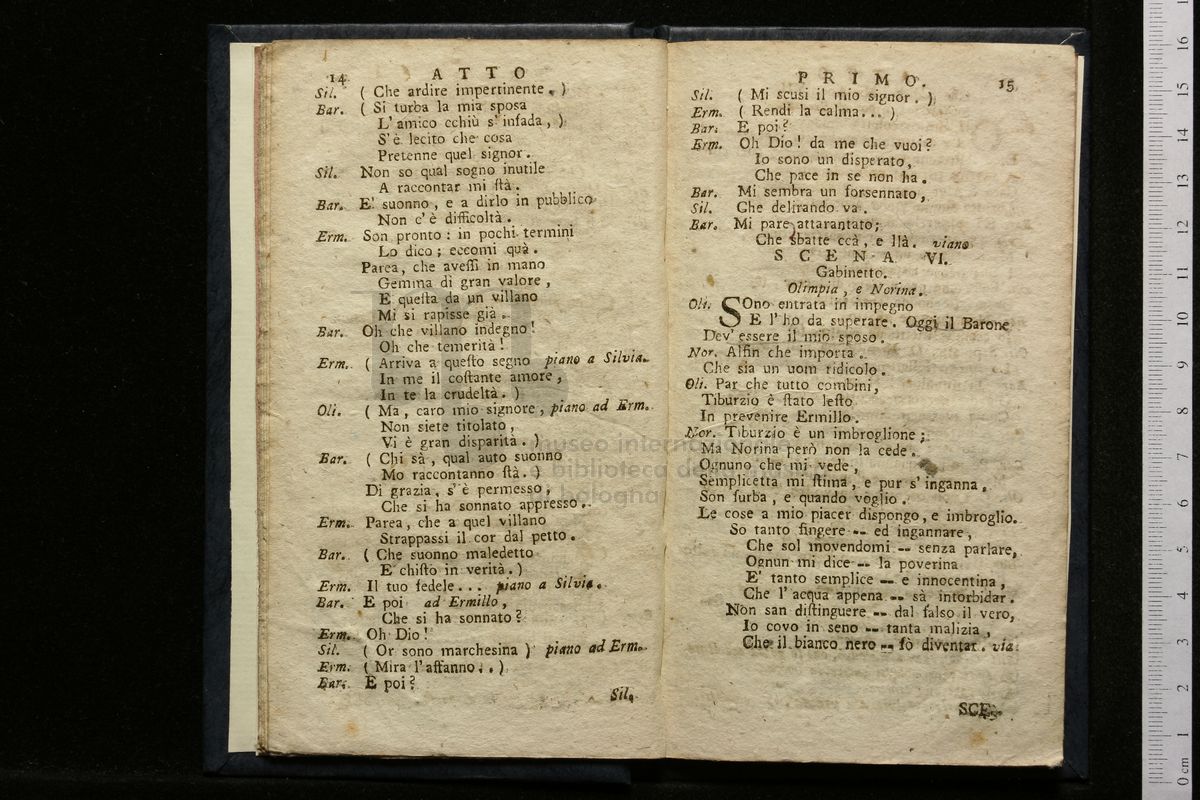 14 ATTO
Sil. ( Che ardire impertinente. )
Bar. ( Si turba la mia sposa
L' amico cchiù s' infada, )
S' è lecito che cosa
Pretenne quel signor.
Sil. Non so qual sogno inutile
A raccontar mi ſtà.
Bar. E' suonno, e a dirlo in pubblico
Non c' è difficoltà.
Erm. Son pronto: in pochi termini
Lo dico; eccomi quà.
Parea, che aveſſi in mano
Gemma di gran valore,
E queſta da un villano
Mi si rapisse già.
Bar. Oh che villano indegno!
Oh che temerità!
Erm. ( Arriva a queſto segno piano a Silvia.
In me il coſtante amore,
In te la crudeltà. )
Oli. ( Ma, caro mio signore, piano ad Erm.
Non siete titolato,
Vi è gran disparità. )
Bar. ( Chi sà, qual auto suonno
Mo raccontanno ſtà. )
Di grazia, s' è permesso,
Che si ha sonnato appresso.
Erm. Parea, che a quel villano
Strappassi il cor dal petto.
Bar. ( Che suonno maledetto
E' chiſto in verità. )
Erm. Il tuo fedele... piano a Silvia.
Bar. E poi ad Ermillo,
Che si ha sonnato?
Erm. Oh Dio!
Sil. ( Or sono marchesina ) piano ad Erm.
Erm. ( Mira l' affanno.. )
Bar. E poi?
Sil.
PRIMO. 15
Sil. ( Mi scusi il mio signor. )
Erm. ( Rendi la calma... )
Bar. E poi?
Erm. Oh Dio! da me che vuoi?
Io sono un disperato,
Che pace in se non ha.
Bar. Mi sembra un forsennato,
Sil. Che delirando va.
Bar. Mi pare attarantato;
Che sbatte ccà, e llà. viano
SCENA VI.
Gabinetto.
Olimpia, e Norina.
Oli. SOno entrata in impegno
E l' ho da superare. Oggi il Barone
Dev' essere il mio sposo.
Nor. Alfin che importa.
Che sia un uom ridicolo.
Oli. Par che tutto combini,
Tiburzio è ſtato leſto
In prevenire Ermillo.
Nor. Tiburzio è un imbroglione;
Ma Norina però non la cede.
Ognuno che mi vede,
Semplicetta mi ſtima, e pur s' inganna.
Son furba, e quando voglio.
Le cose a mio piacer dispongo, e imbroglio.
So tanto fingere -- ed ingannare,
Che sol movendomi -- senza parlare,
Ognun mi dice -- la poverina
E' tanto semplice -- e innocentina,
Che l' acqua appena -- sà intorbidar.
Non san diſtinguere -- dal falso il vero,
Io covo in seno -- tanta malizia,
Che il bianco nero -- fò diventar. via
SCE-
museo internazionale
e biblioteca della musica
di bologna
0 cm 1 2 3 4 5 6 7 8 9 10 11 12 13 14 15 16